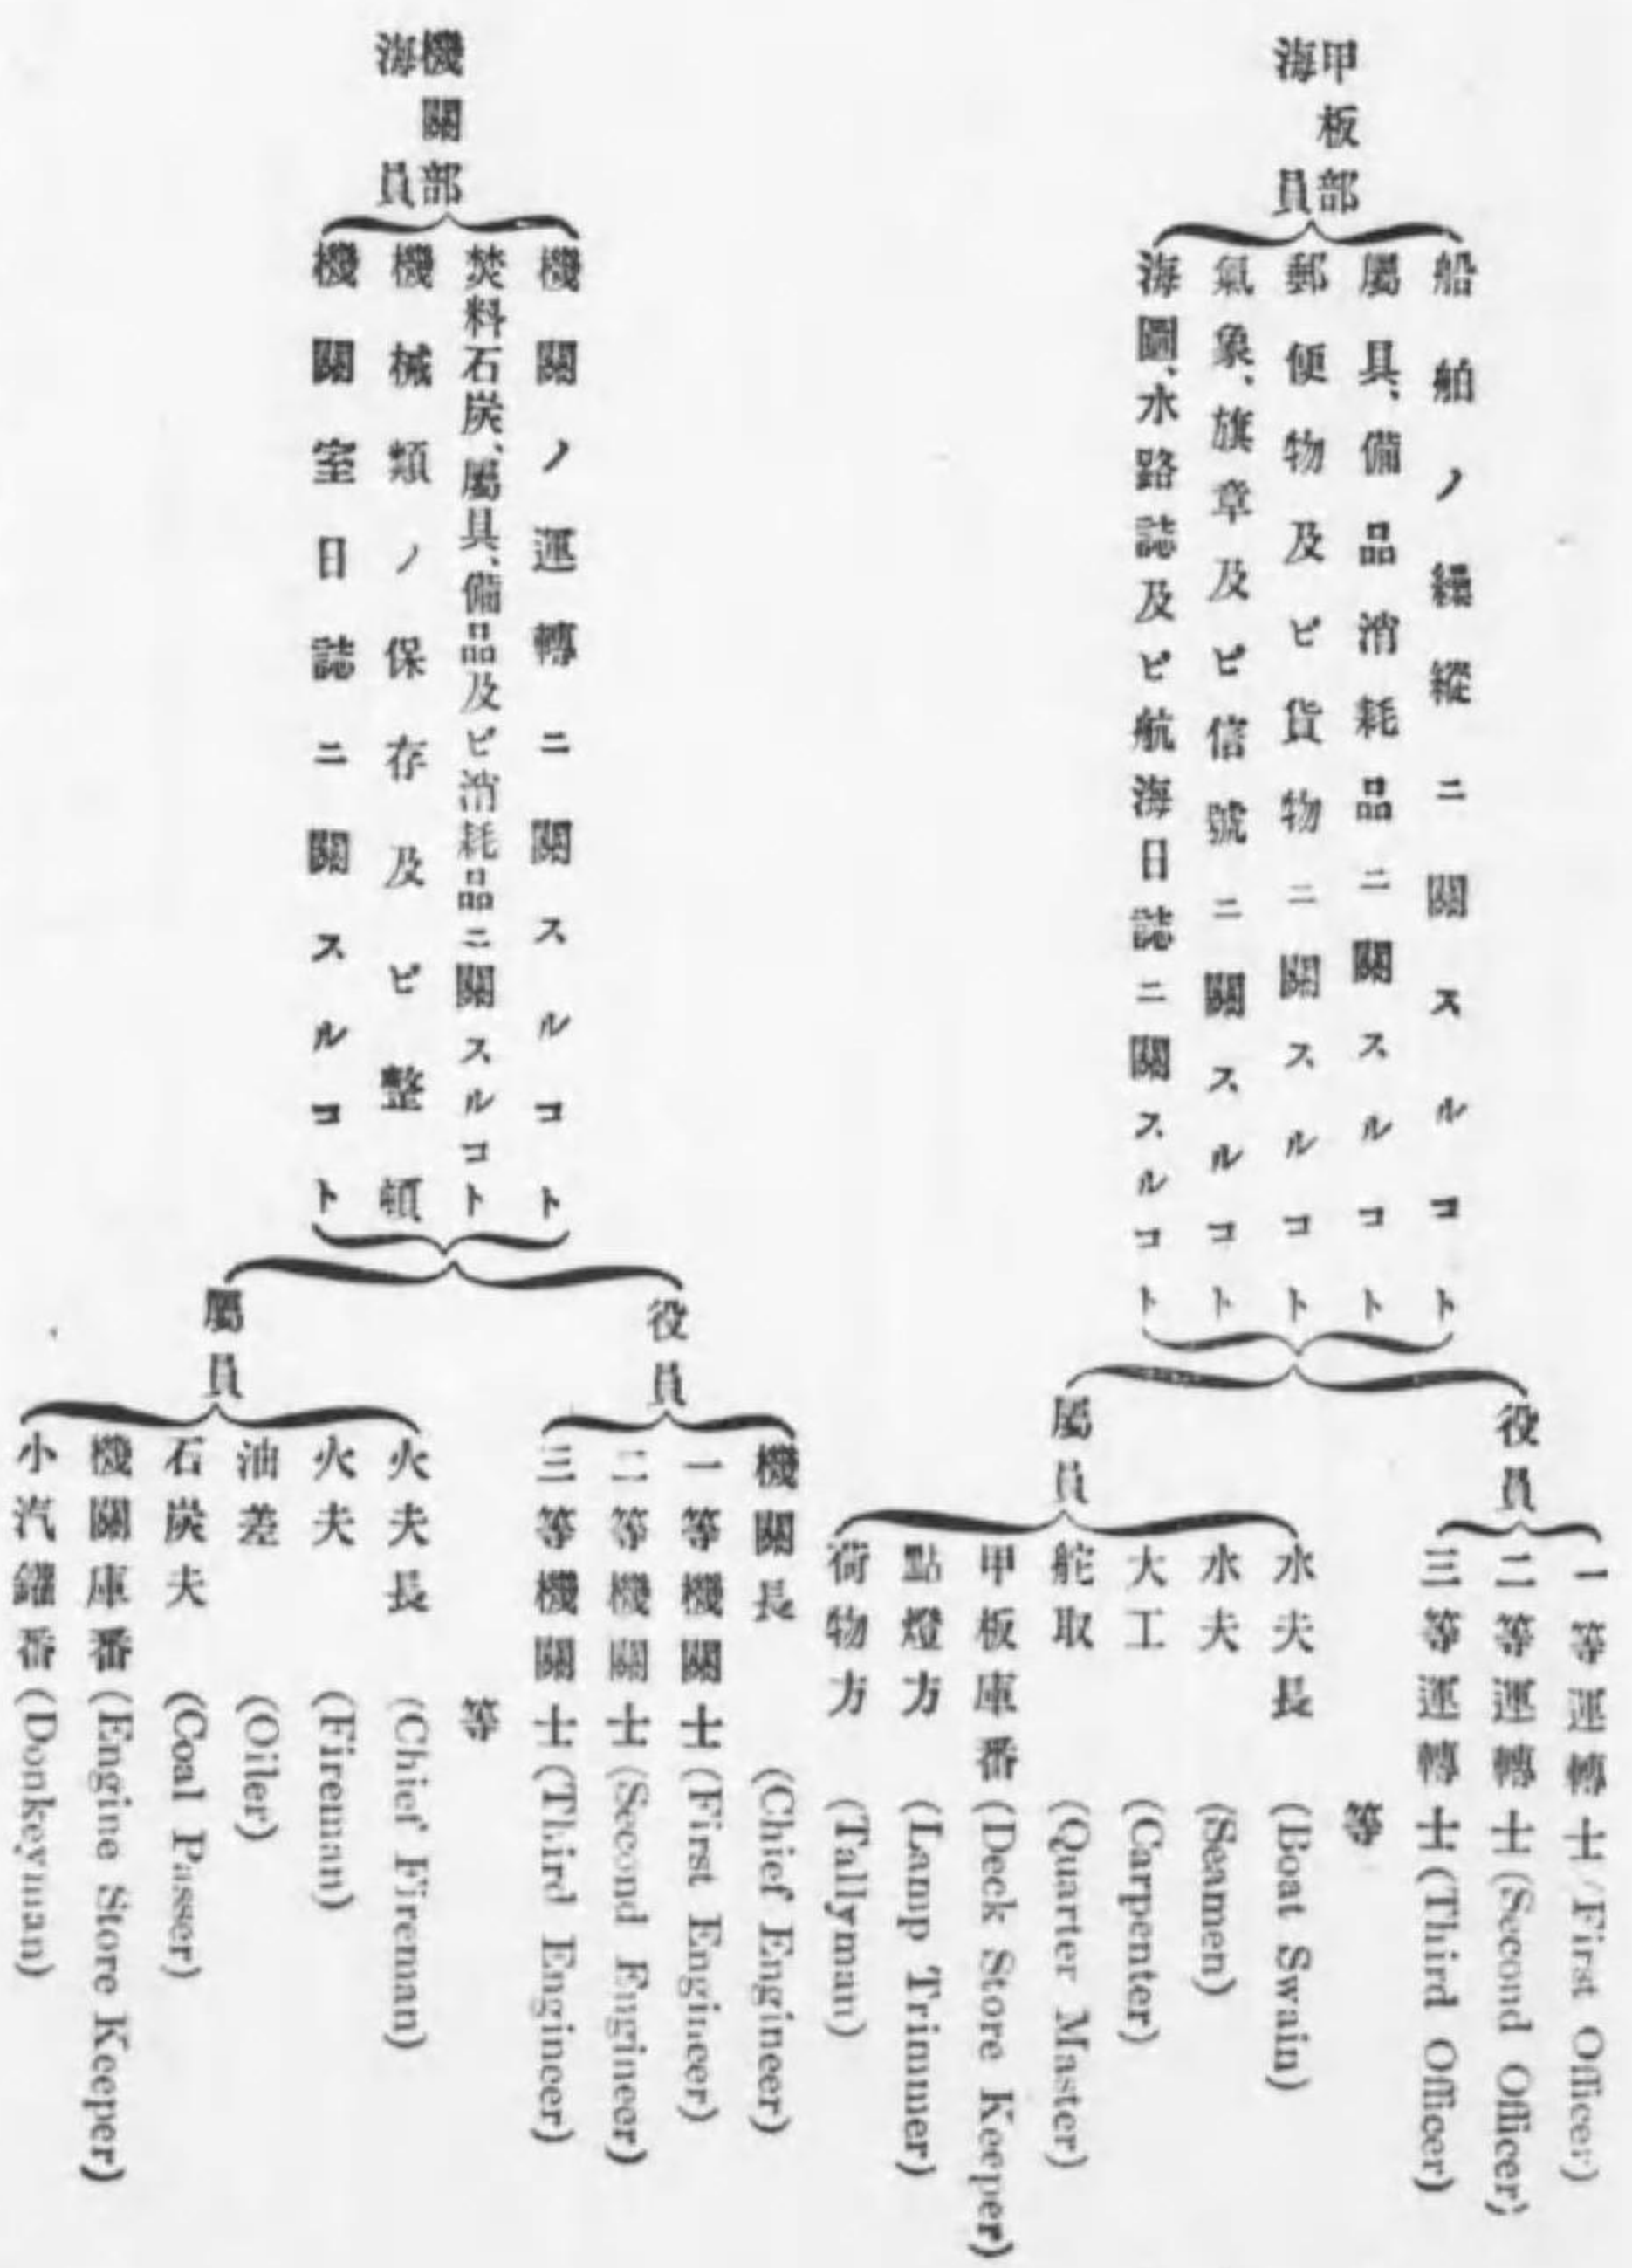 甲板部
海員
船舶ノ繰縱ニ關スルコト
屬具、備品消耗品ニ關スルコト
郵便物及ビ貨物ニ關スルコト
氣象、旗章及ビ信號ニ關スルコト
海圖、水路誌及ビ航海日誌ニ關スルコト
役員
一等運轉士(First Officer)
二等運轉士(Second Officer)
三等運轉士(Third Officer)
等
屬員
水夫長 (Boat Swain)
水夫 (Seamen)
大工 (Carpenter)
舵取 (Quarter Master)
甲板庫番(Deck Store Keeper)
點燈方 (Lamp Trimmer)
荷物方 (Tallyman)
機關部
海員
機關ノ運轉ニ關スルコト
焚料石炭、屬具、備品及ビ消耗品ニ關スルコト
機械類ノ保存及ビ整頓
機關室日誌ニ關スルコト
役員
機關長 (Chief Engineer)
一等機關士(First Engineer)
二等機關士(Second Engineer)
三等機關士(Third Engineer)
等
屬員
火夫長 (Chief Fireman)
火夫 (Fireman)
油差 (Oiler)
石炭夫 (Coal Passer)
機關庫番(Engine Store Keeper)
小汽鑵番(Donkeyman)